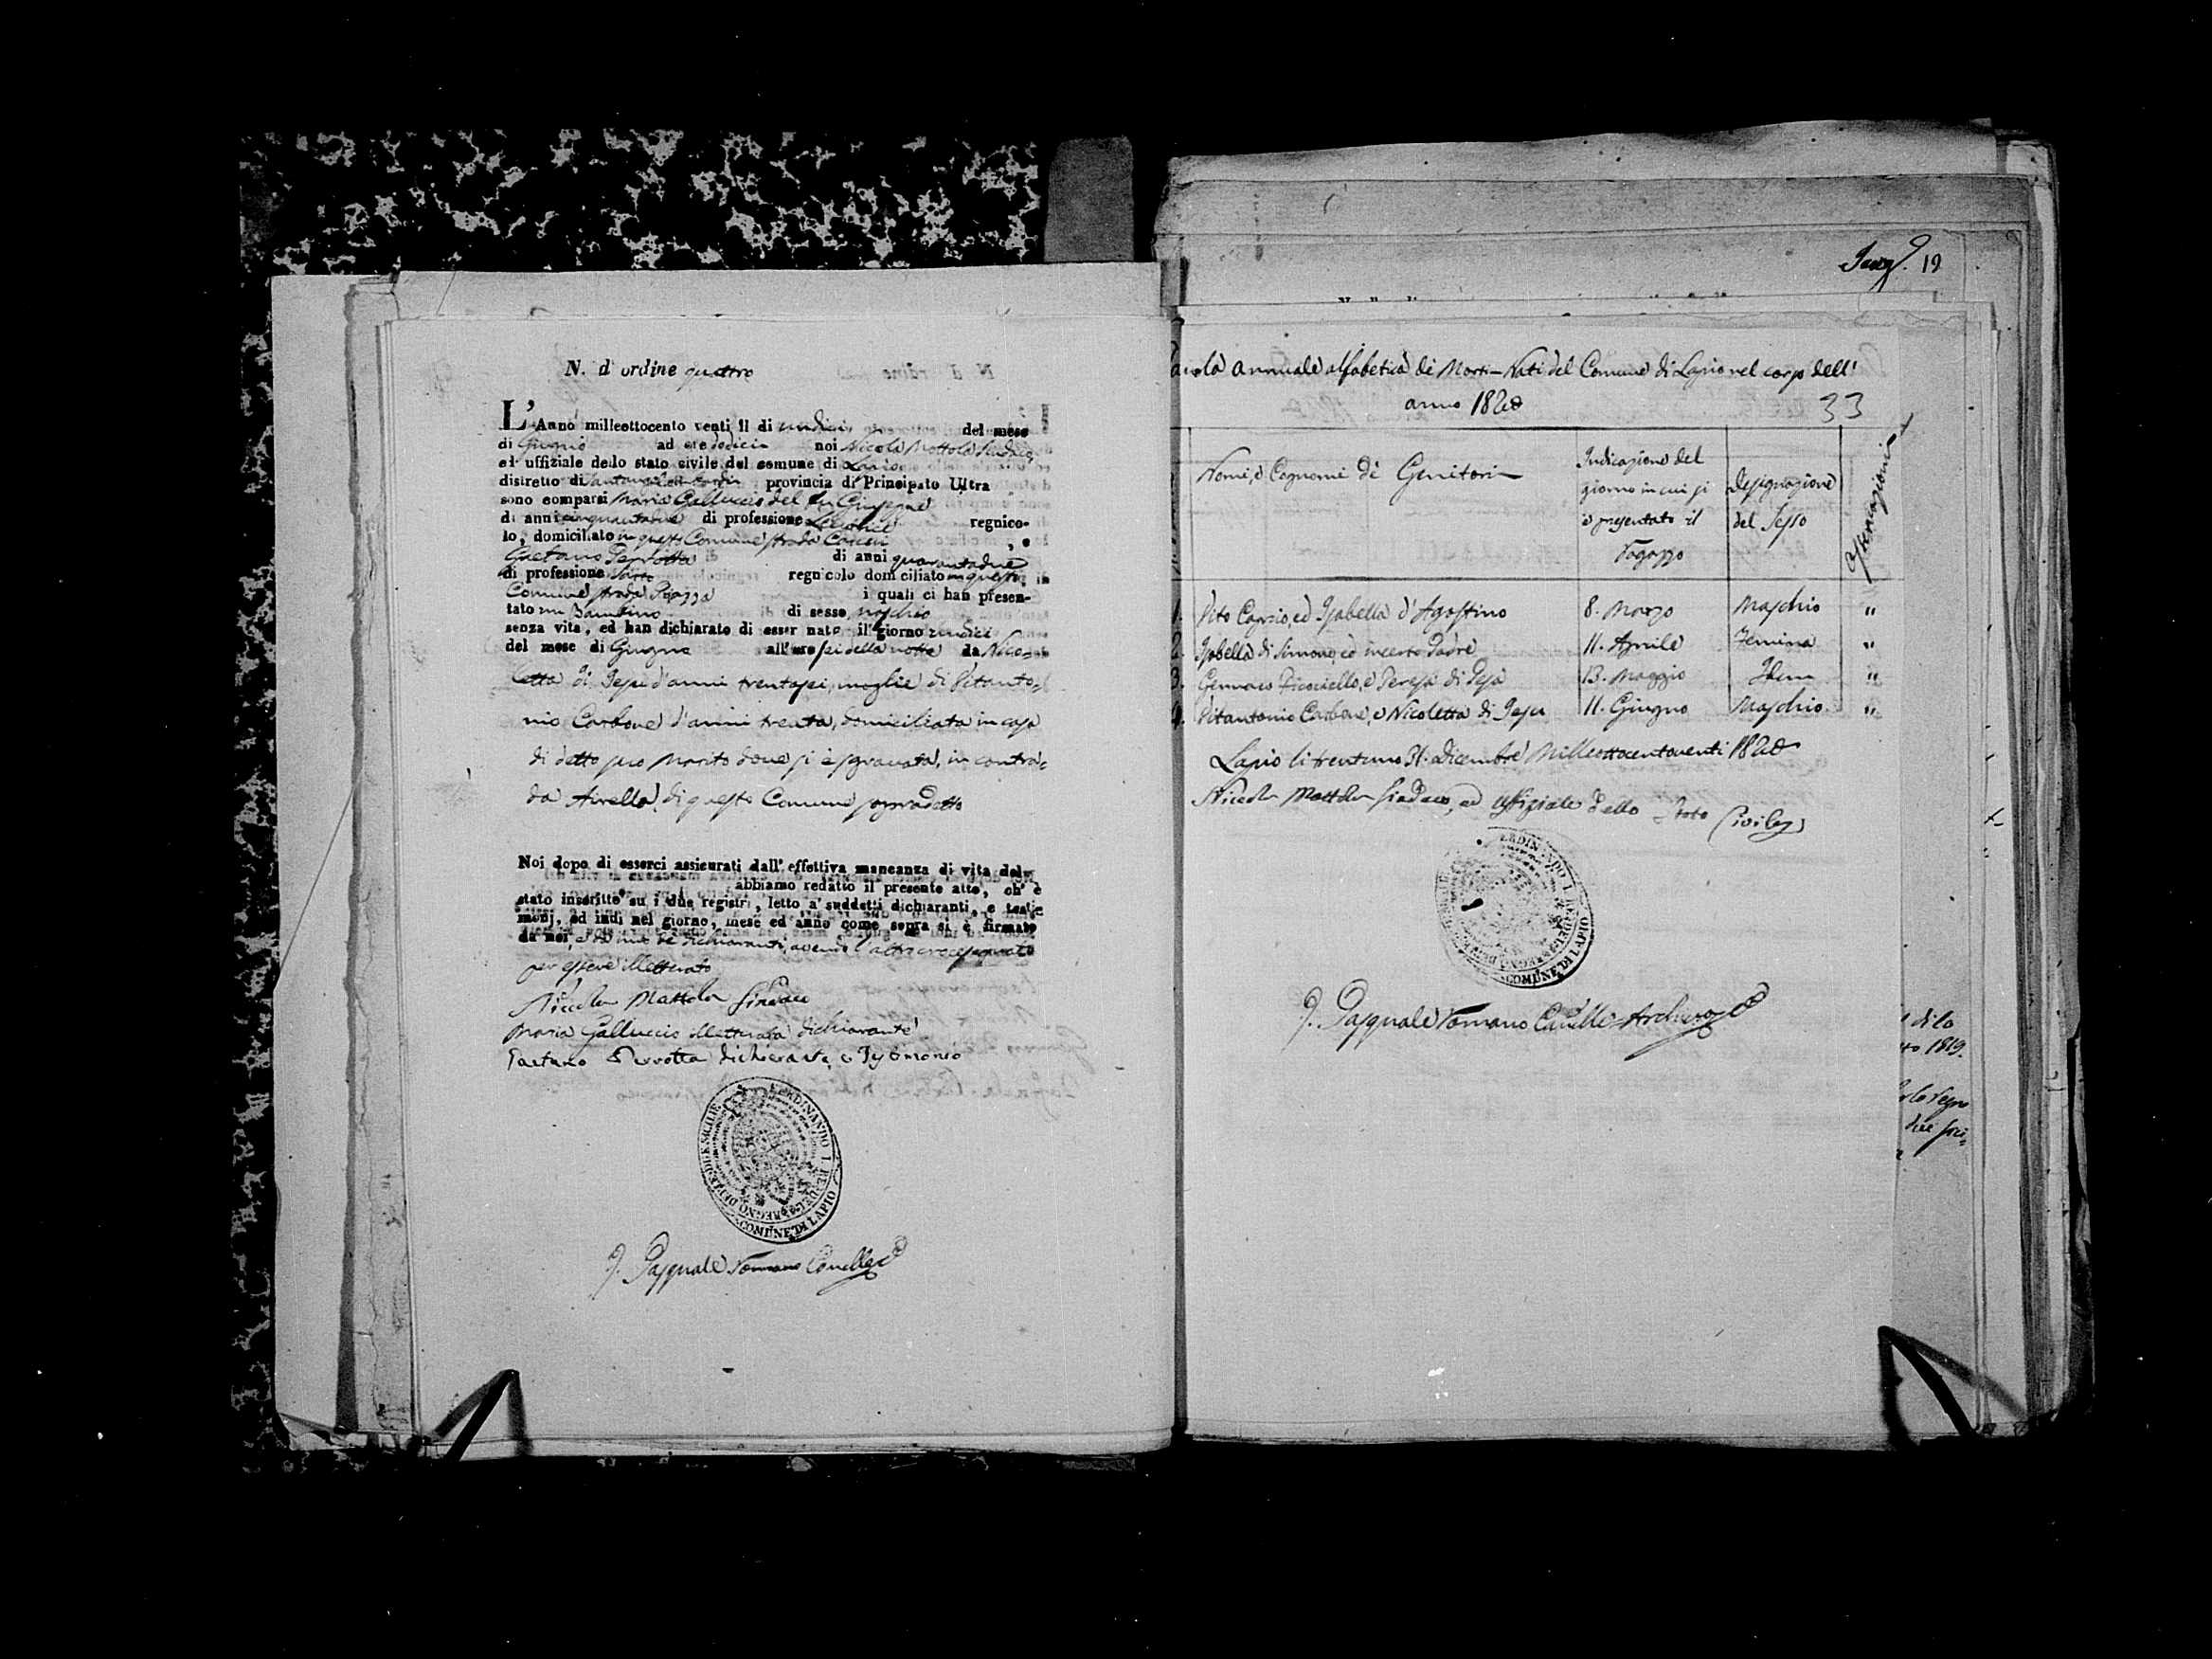 N. d'ordine quattro
L'Anno milleottocento venti il di undici del mese
di Giugno ad ore dodici noi Nicola Mottola Sindaco,
ed uffiziale dello stato civile del comune di Lapio
distretto di provincia di Principato Ultra
sono comparsi Maria Galluccio del fu Giuseppe
di anni cinquantadue di professione regnico-
lo, domiciliato in questo Comune strada , e
Gaetano Perrotta di anni quarantadue
di professione Sarto regnicolo domiciliato in questo
Comune strada Piazza i quali ci han presen-
tato un Bambino di sesso maschio
senza vita, ed han dichiarato di esser nato il giorno undici
del mese di Giugno all'ore sei della notte da Nico-
letta di Jesu d'anni trentasei, moglie di Vitanto=
nio Carbone d'anni trenta, domiciliata in casa
di detto suo marito dove si è sgravata, in contra=
da Airella, di questo Comune sopradetto
Noi dopo di esserci assicurati dall' effettiva mancanza di vita del
abbiamo redatto il presente atto, ch' è
stato inscritto su i due registri, letto a' suddetti dichiaranti, e testi-
monj, ed indi nel giorno, mese ed anno come sopra si è firmato
da noi, e da uno de' dichiaranti, avendo l'altro crocesegnato
per essere illetterato
Niccola Mottola Sindaco
Maria Galluccio illetterata dichiarante
Gaetano Perrotta dichiarante, e Testimonio
FERDINANDO I. RE DEL REGNO DELLE DUE SICILIE
COMUNE DI LAPIO
Pasquale Romano Canelli
19
Tavola annuale alfabetica de' Morti-Nati del Comune di Lapio nel corso dell'
anno 1820
33
Nomi, e Cognomi de' Genitori
Indicazione del
giorno in cui si
è presentato il
Ragazzo
Designazione
del Sesso
Osservazioni
1. Vito Caprio, ed Isabella d'Agostino 8. Marzo Maschio "
2. Isabella di Simone, ed incerto Padre 11. Aprile Femina "
3. Gennaro Ficociello, e Teresa di Jesu 13. Maggio Idem "
4. Vitantonio Carbone, e Nicoletta di Jesu 11. Giugno Maschio "
Lapio li trentuno 31. Dicembre Milleottocentoventi 1820
Niccola Mottola Sindaco, ed uffiziale dello Stato Civile
FERDINANDO I. RE DEL REGNO DELLE DUE SICILIE
COMUNE DI LAPIO
Pasquale Romano Canelli
1819.